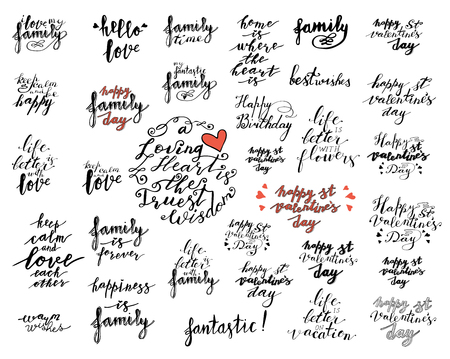 i love my
family
hello
love
family
time
home
is
where
the
heart
is
family
happy st
valentine's
day
keep
calm
and be
happy
happy
family
day
my
fantastic
family
best wishes
happy st
valentine's
day
a
Loving
Heart is
the
Truest
Wisdom
Happy
Birthday
life
is
better
with
flowers
happy st
valentine's
day
life
is
better
with
love
keep calm
and
love
happy st
valentine's
day
happy st
valentine's
day
happy st
valentine's
day
keep
calm
and
love
each
other
family
is
forever
life
is
better
with
family
Happy St
Valentine's
Day
happy st
valentine's
day
Happy St
Valentine's
Day
happiness
is
family
happy st
valentine's
day
happy st
valentine's
day
warm
wishes
fantastic!
life
is
better
on
vacation
happy st
valentine's
day